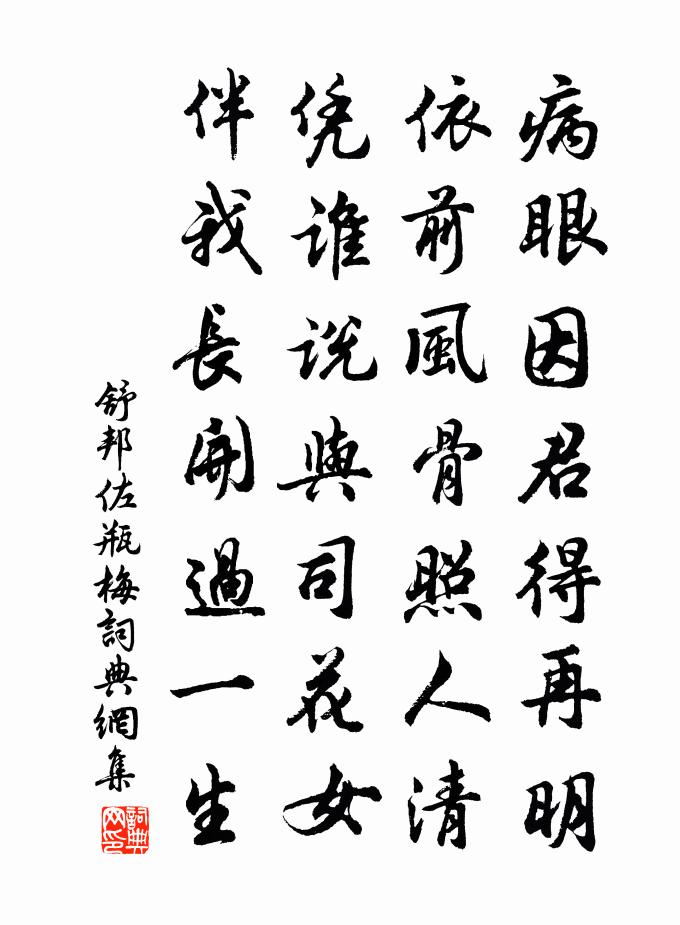 病眼因君得再明
依前風骨照人清
凭誰説與司花女
伴我長開過一生
舒邦佐瓶梅詞典網集
詞典
网印